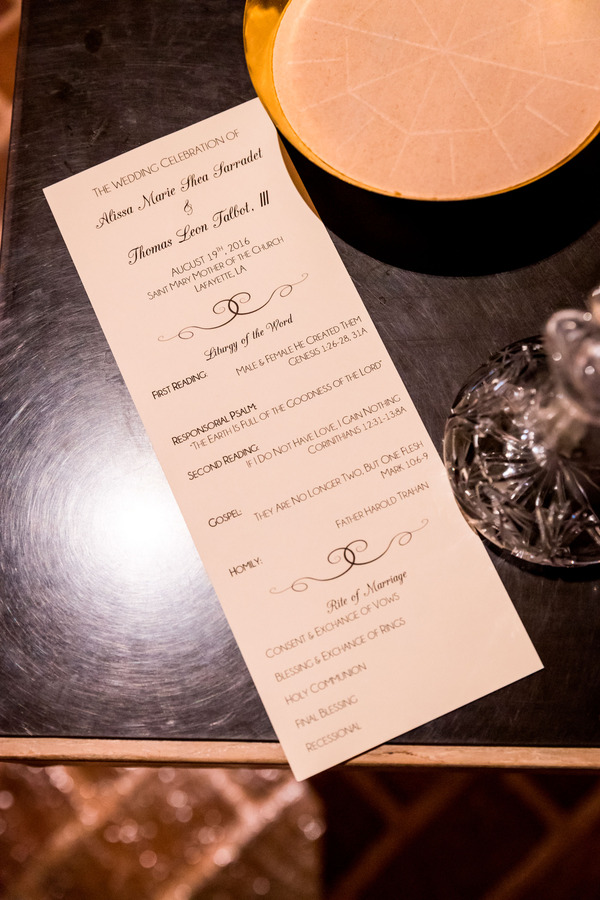 THE WEDDING CELEBRATION OF
Alissa Marie Shea Sarradet
&
Thomas Leon Talbot, III
AUGUST 19TH, 2016
SAINT MARY MOTHER OF THE CHURCH
LAFAYETTE, LA
Liturgy of the Word
FIRST READING: MALE & FEMALE HE CREATED THEM
GENESIS 1:26-28, 31A
RESPONSORIAL PSALM:
"THE EARTH IS FULL OF THE GOODNESS OF THE LORD"
SECOND READING: IF I DO NOT HAVE LOVE, I GAIN NOTHING
CORINTHIANS 12:31-13:8A
GOSPEL: THEY ARE NO LONGER TWO, BUT ONE FLESH
MARK 10:6-9
HOMILY: FATHER HAROLD TRAHAN
Rite of Marriage
CONSENT & EXCHANGE OF VOWS
BLESSING & EXCHANGE OF RINGS
HOLY COMMUNION
FINAL BLESSING
RECESSIONAL